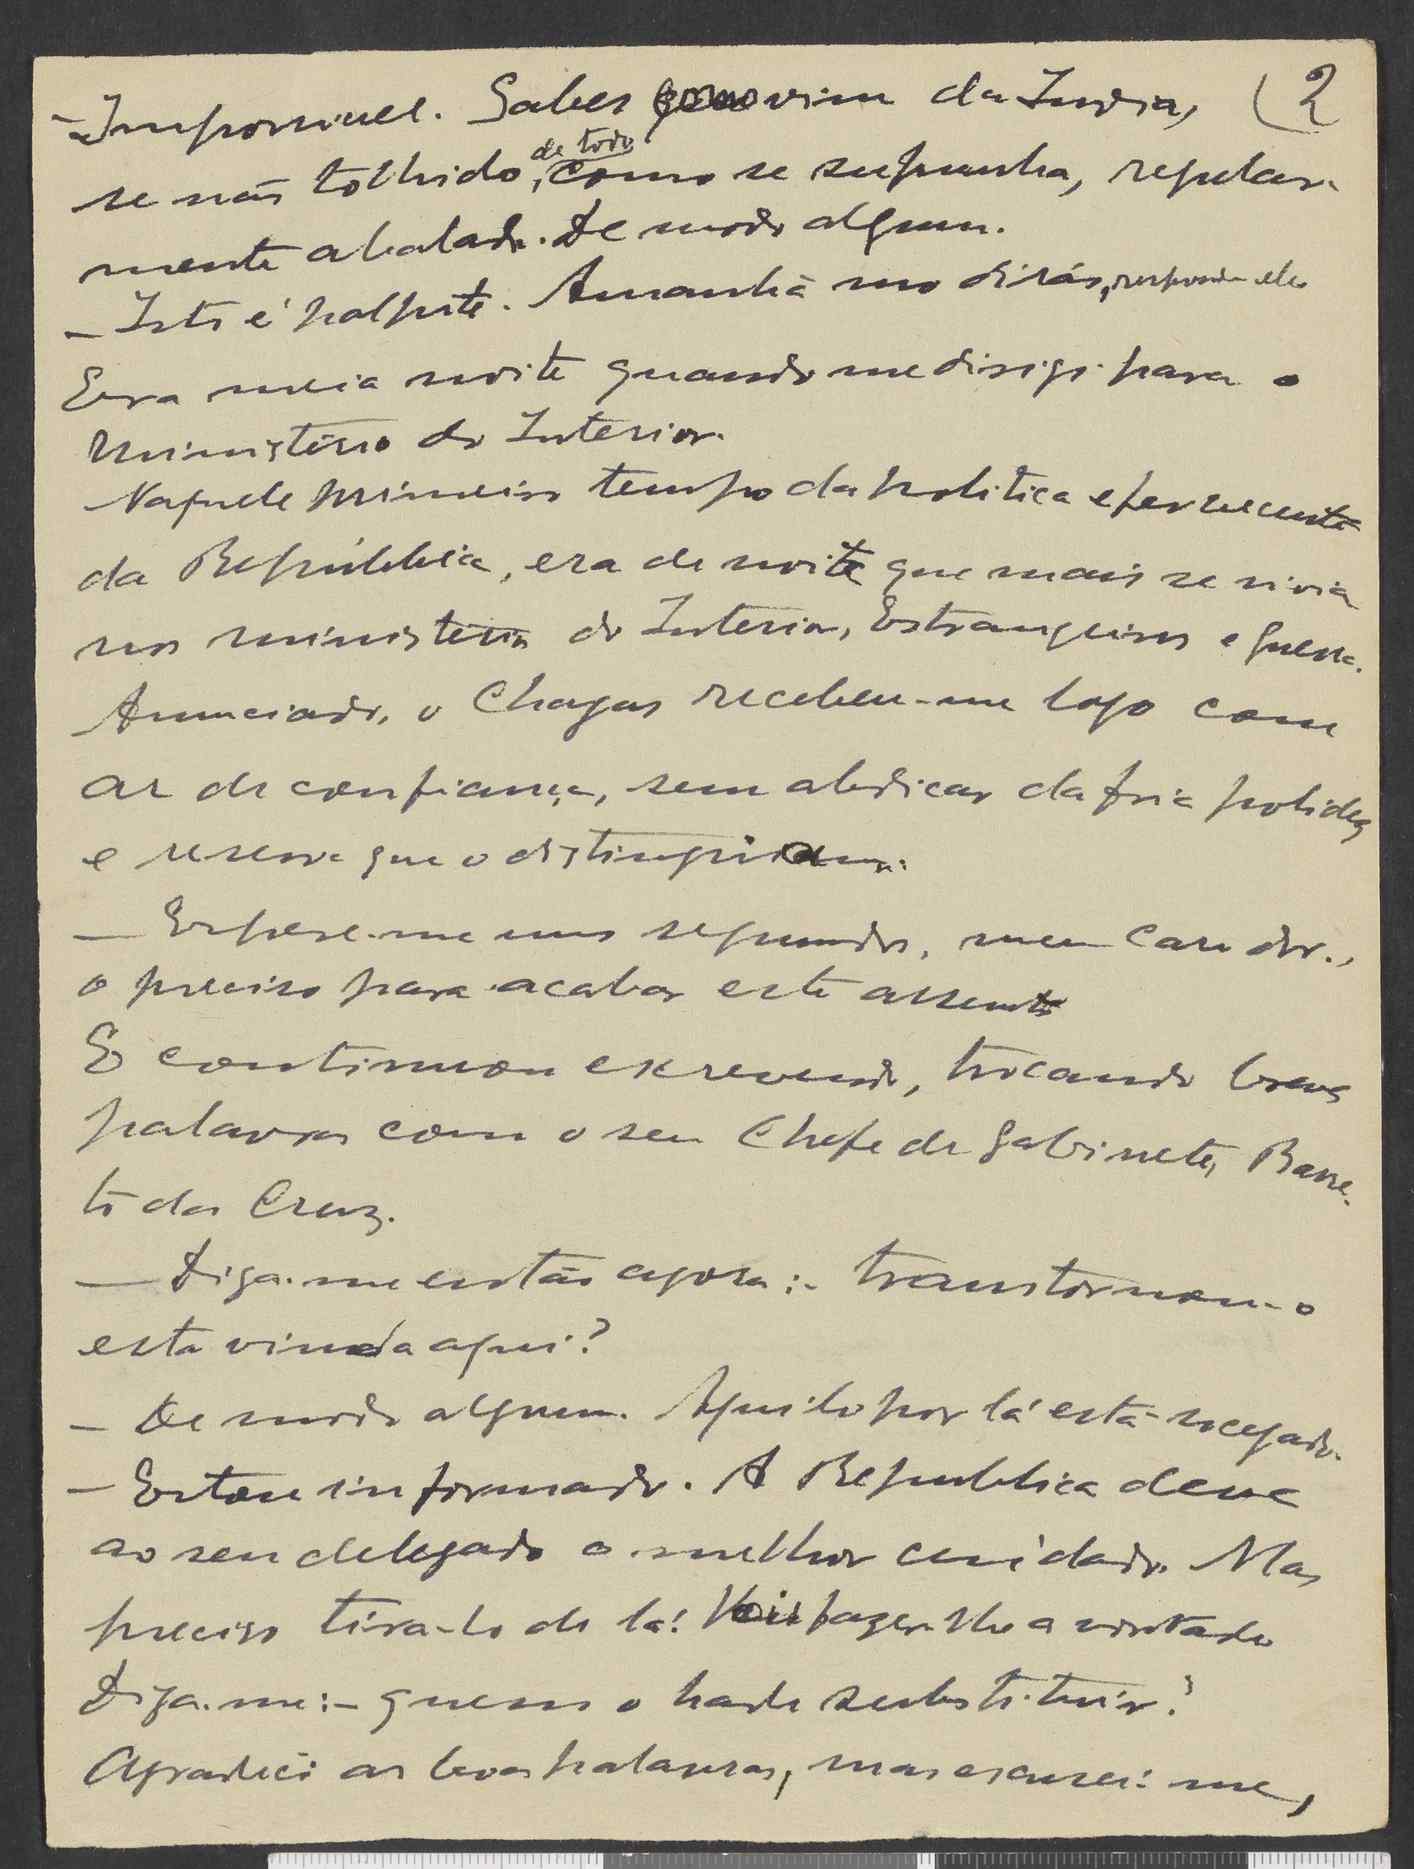 - Impossivel. Sabes como vim da India, (2
se não tolhido, de todo, como se supunha, regular-
mente abalado. De modo algum.
- Isto é palpite. Amanhã mo dirás, respondeu ele
Era meia noite quando me dirigi para o
Ministério do Interior.
Naquele primeiro tempo da politica efervescente
da República, era de noite que mais se vivia
nos ministerios do Interior, Estrangeiros e Guerra.
Anunciado, o Chagas recebeu-me logo com
ar de confiança, sem abdicar da fria polidez
e reserva que o distinguiam.
- Espere-me uns segundos, meu caro dr.,
o preciso para acabar este assunto
E continuou escrevendo, trocando breves
palavras com o seu Chefe de Gabinete, Barre-
to da Cruz.
- Diga-me então agora:- transtornou-o
esta vinda aqui?
- De modo algum. Aquilo por lá está socegado.
- Estou informado. A Republica deve
ao seu delegado o melhor cuidado. Mas
preciso tira-lo de lá! Vou fazer-lhe a vontade
Diga-me:- quem o hade substituir?
Agradeci as boas palavras, mas escusei-me,